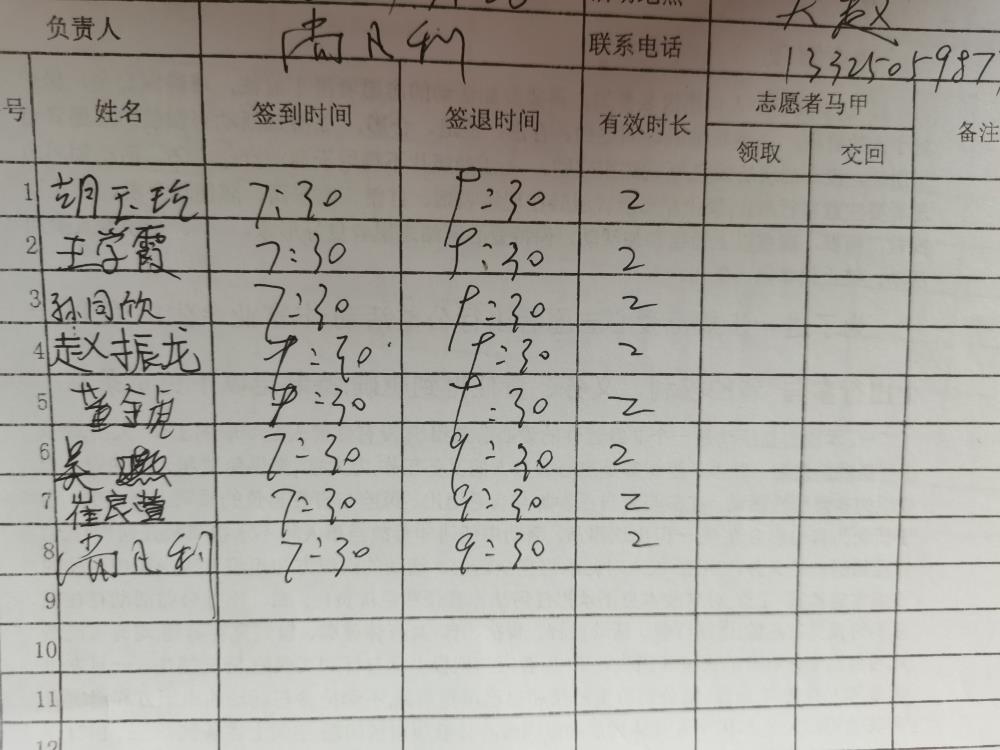 大赵
负责人 尚凡利 联系电话 13325059877
号 姓名 签到时间 签退时间 有效时长 志愿者马甲 备注
领取 交回
1 胡玉玲 7:30 9:30 2
2 王学霞 7:30 9:30 2
3 孙同欣 7:30 9:30 2
4 赵振龙 7:30 9:30 2
5 董金虎 7:30 9:30 2
6 吴熙 7:30 9:30 2
7 崔良萱 7:30 9:30 2
8 尚凡利 7:30 9:30 2
9
10
11
12